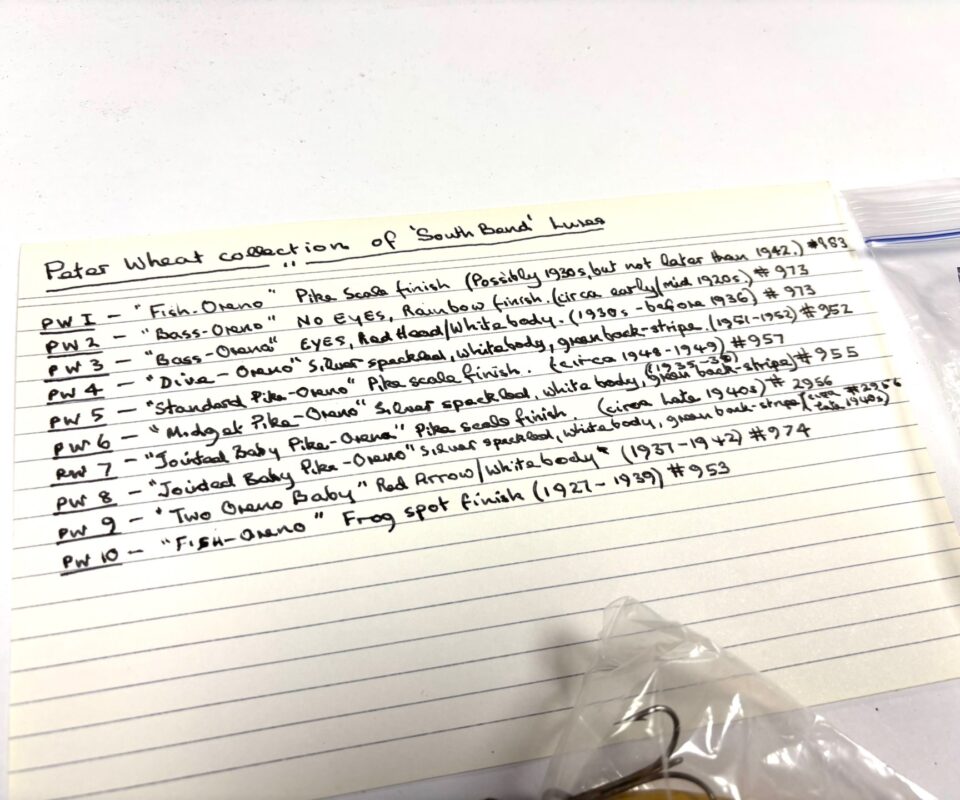 Peter Wheat collection of 'South Bend' Lures
PW 1 - "Fish-Oreno" Pike Scale finish (Possibly 1930s, but not later than 1942.) #953
PW 2 - "Bass-Oreno" NO EYES, Rainbow finish. (circa early/mid 1920s.) # 973
PW 3 - "Bass-Oreno" EYES, Red Head/White body. (1930s - before 1936) # 973
PW 4 - "Dive-Oreno" Silver speckled, white body, green back-stripe. (1951-1952) # 952
PW 5 - "Standard Pike-Oreno" Pike scale finish. (circa 1948-1949) # 957
PW 6 - "Midget Pike-Oreno" Silver speckled, white body, green back-stripe (1935-38) # 955
PW 7 - "Jointed Baby Pike-Oreno" Pike scale finish. (circa late 1940s) # 2956
PW 8 - "Jointed Baby Pike-Oreno" Silver speckled, white body, green back-stripe (circa late 1940s) #2956
PW 9 - "Two Oreno Baby" Red Arrow/White body" (1937-1942) #974
PW 10 - "FISH-Oreno" Frog spot finish (1927-1939) #953